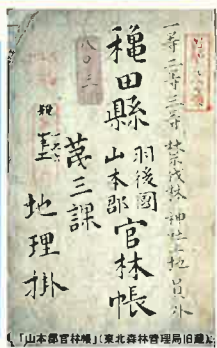 一等二等三等 禁伐林 神社上地 員外
八〇三
穐田縣 羽後國 山本郡 官林帳
第三課
地理掛
「山本郡官林帳」(東北森林管理局旧蔵)